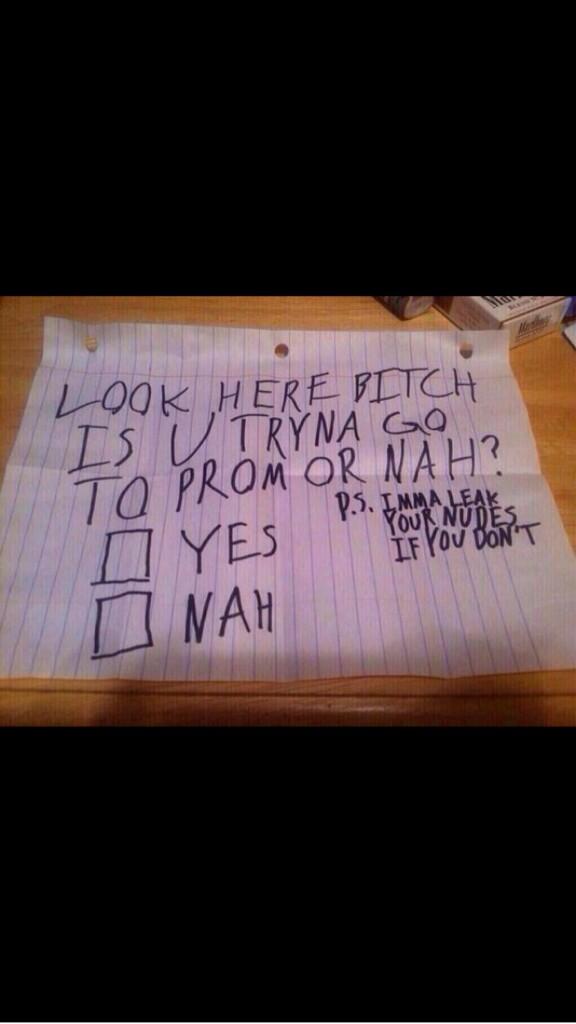 LOOK HERE BITCH
IS U TRYNA GO
TO PROM OR NAH?
P.S. IMMA LEAK
YOUR NUDES
IF YOU DON'T
YES
NAH